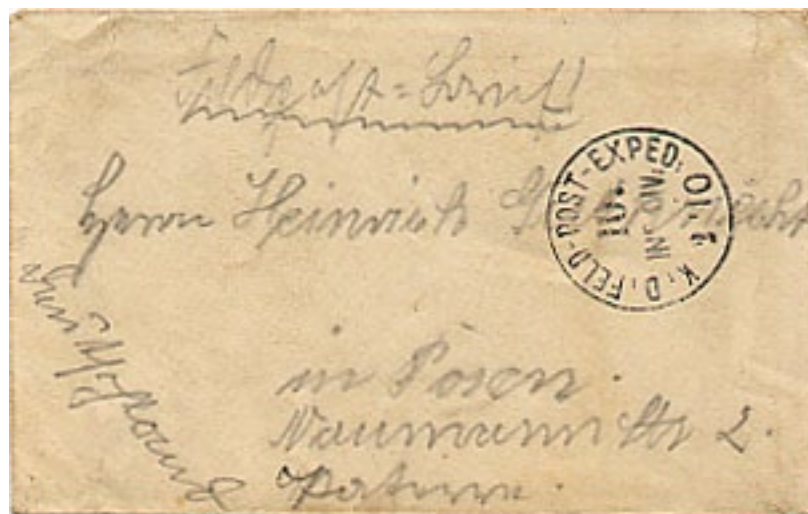 Feldpost-Brief!
Herrn Heinrich
K.D. FELD-POST-EXPED.
10.
INF. DIV.
Deutschland
in Posen.
Naumannstr 2.